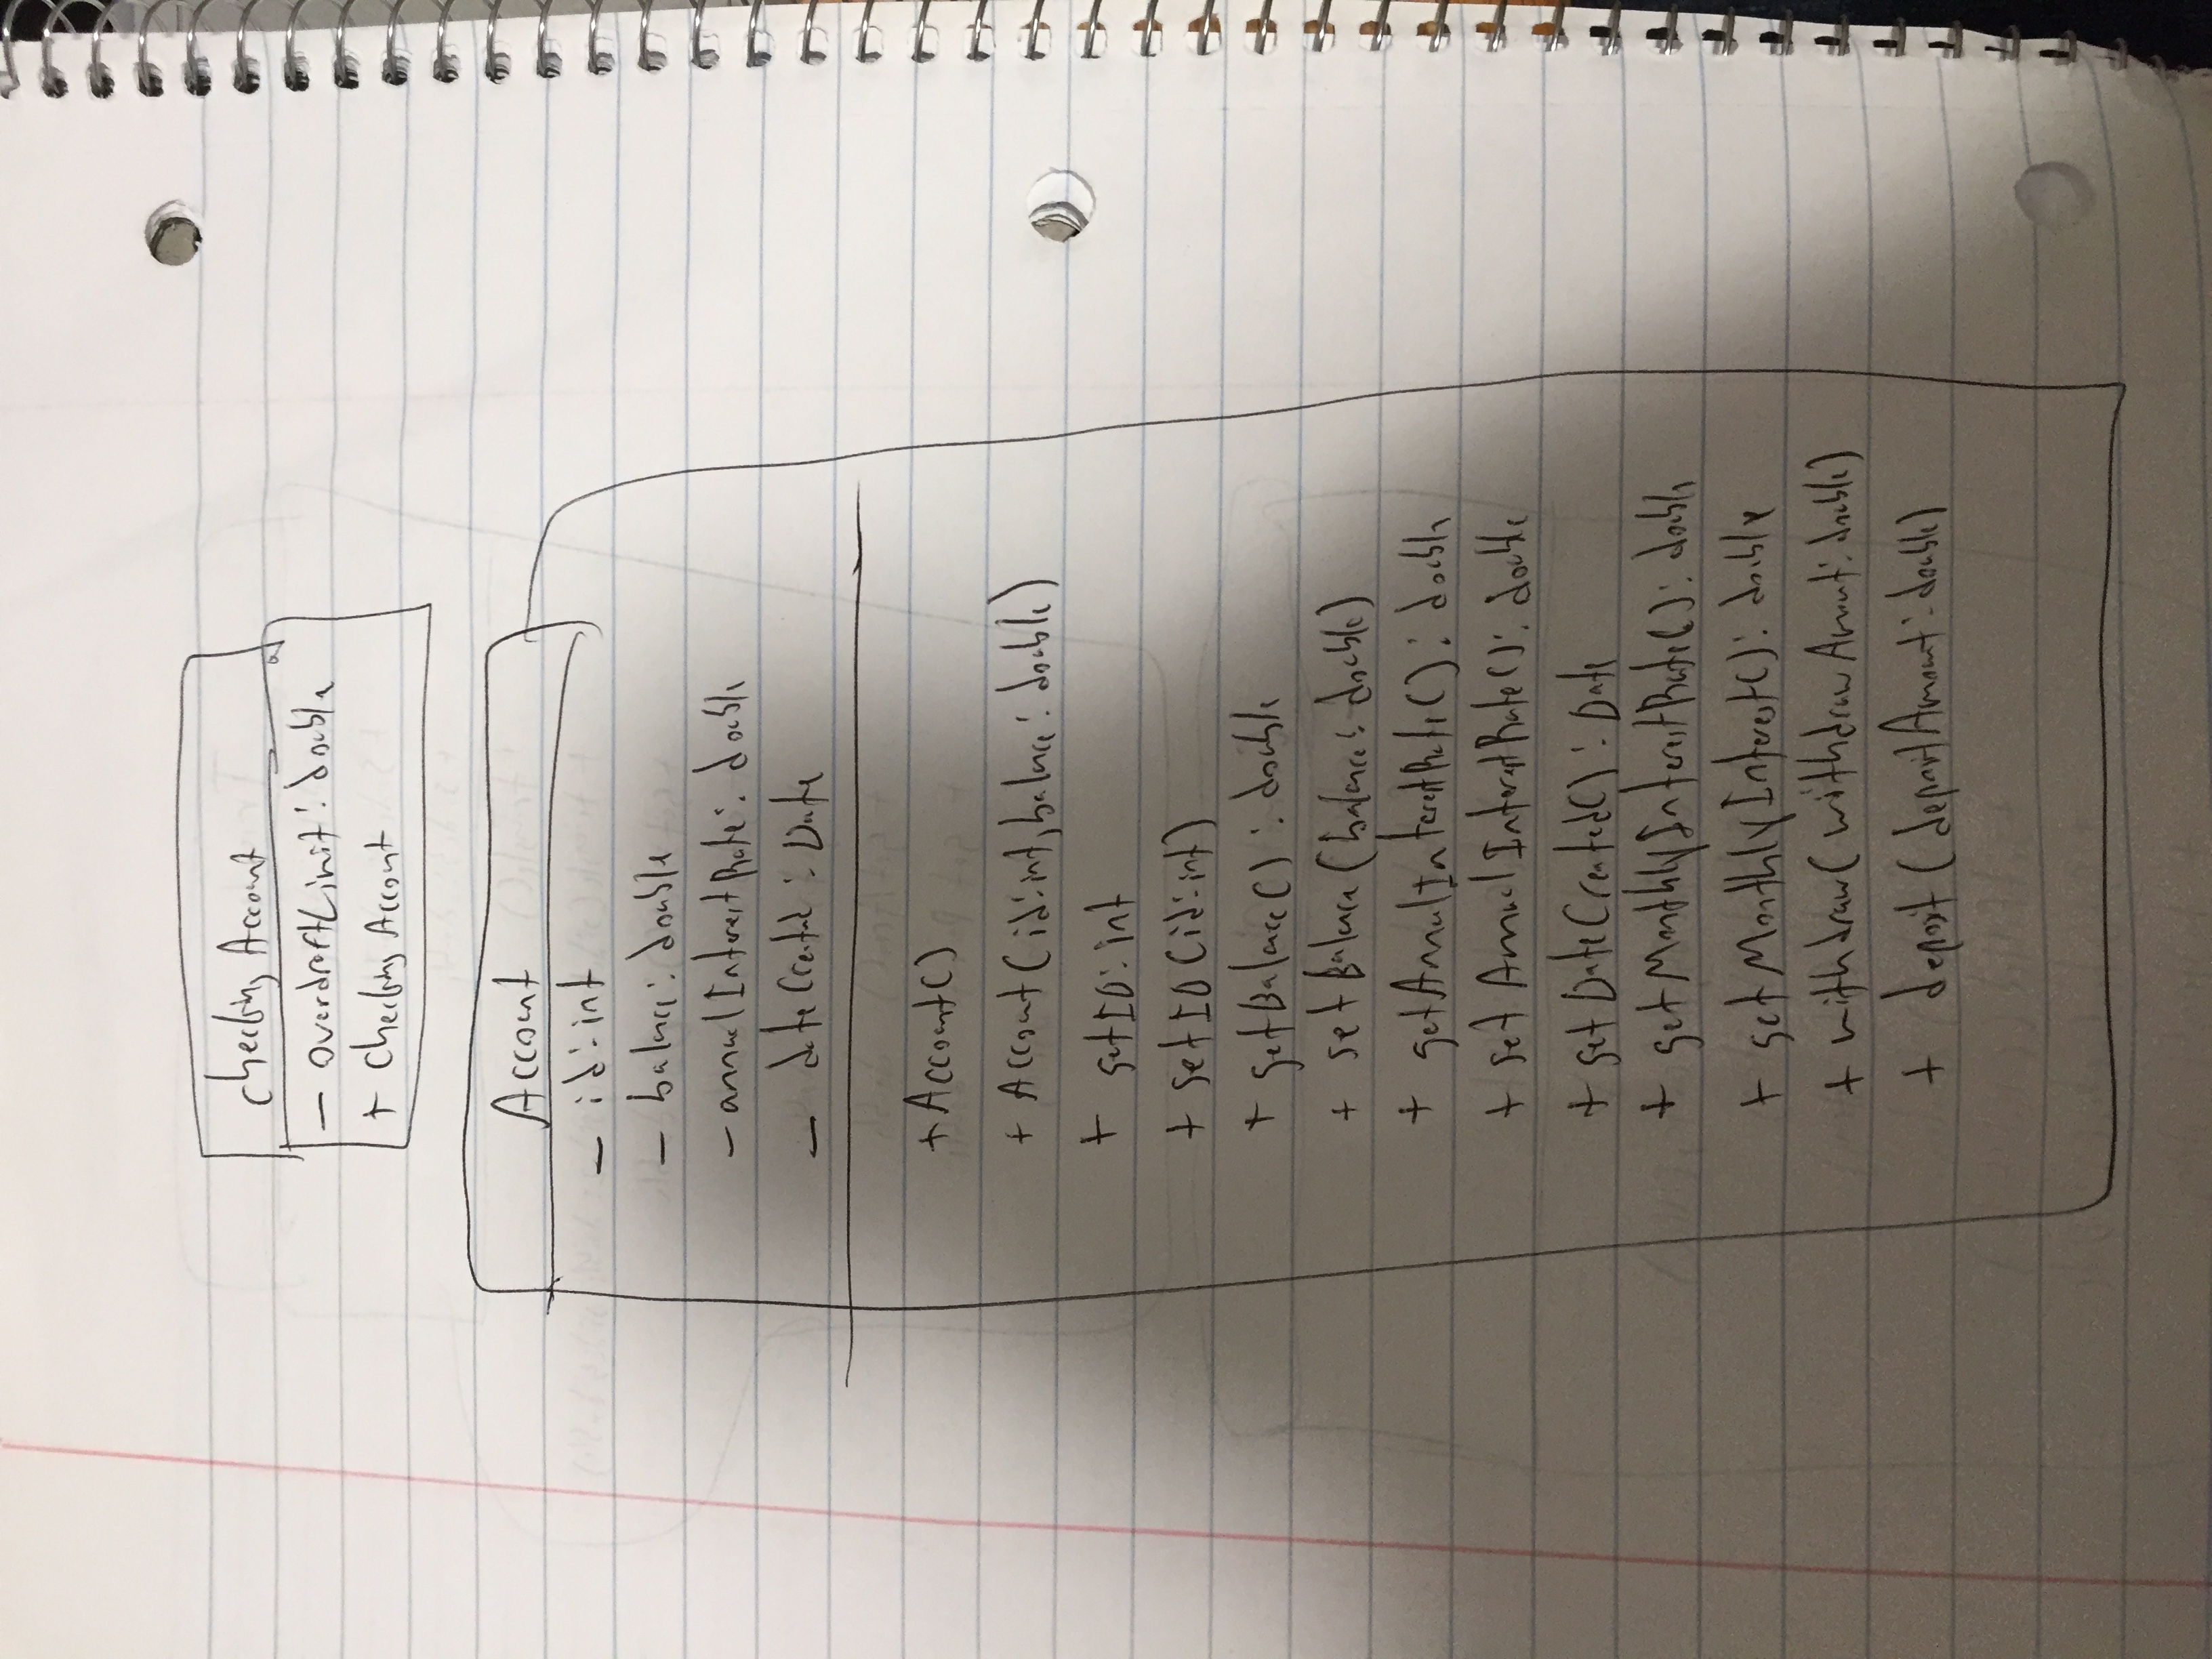 Checking Account
- overdraftLimit : double
+ Checking Account
Account
- id : int
- balance : double
- annualInterestRate : double
- dateCreated : Date
+ Account()
+ Account(id:int, balance: double)
+ getID: int
+ setID(id:int)
+ getBalance() : double
+ setBalance(balance: double)
+ getAnnualInterestRate() : double
+ set AnnualInterestRate() : double
+ getDateCreated() : Date
+ getMonthlyInterestRate() : double
+ getMonthlyInterest() : double
+ withdraw( withdrawAmount: double)
+ deposit (depositAmount: double)